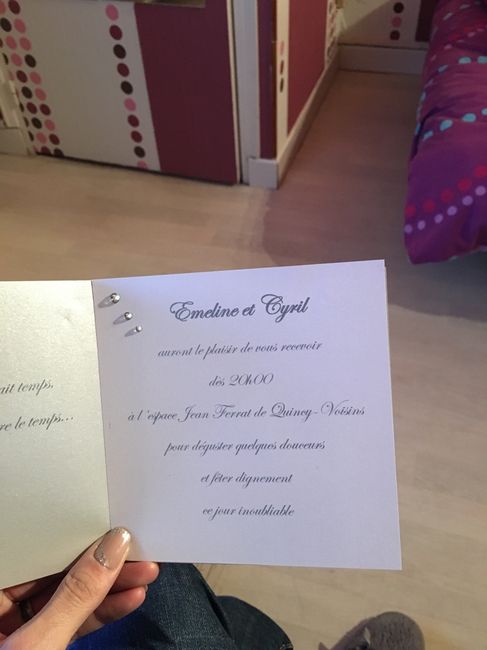 ait temps,
re le temps...
Emeline et Cyril
auront le plaisir de vous recevoir
dès 20h00
à l'espace Jean Ferrat de Quincy-Voisins
pour déguster quelques douceurs
et fêter dignement
ce jour inoubliable